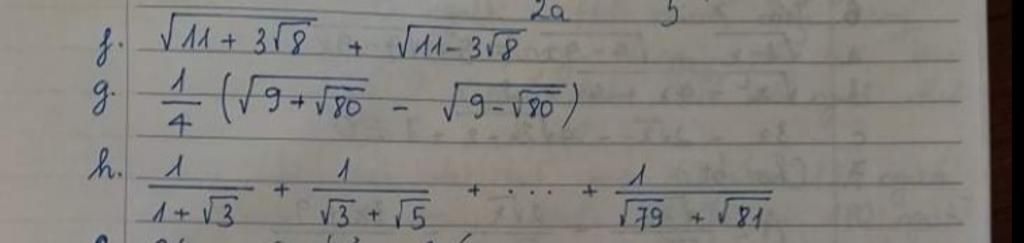 2a 5
f. √(11 + 3√8) + √(11 - 3√8)
g. 1/4 (√(9 + √80) - √(9 - √80))
h. 1/(1 + √3) + 1/(√3 + √5) + ... + 1/(√79 + √81)